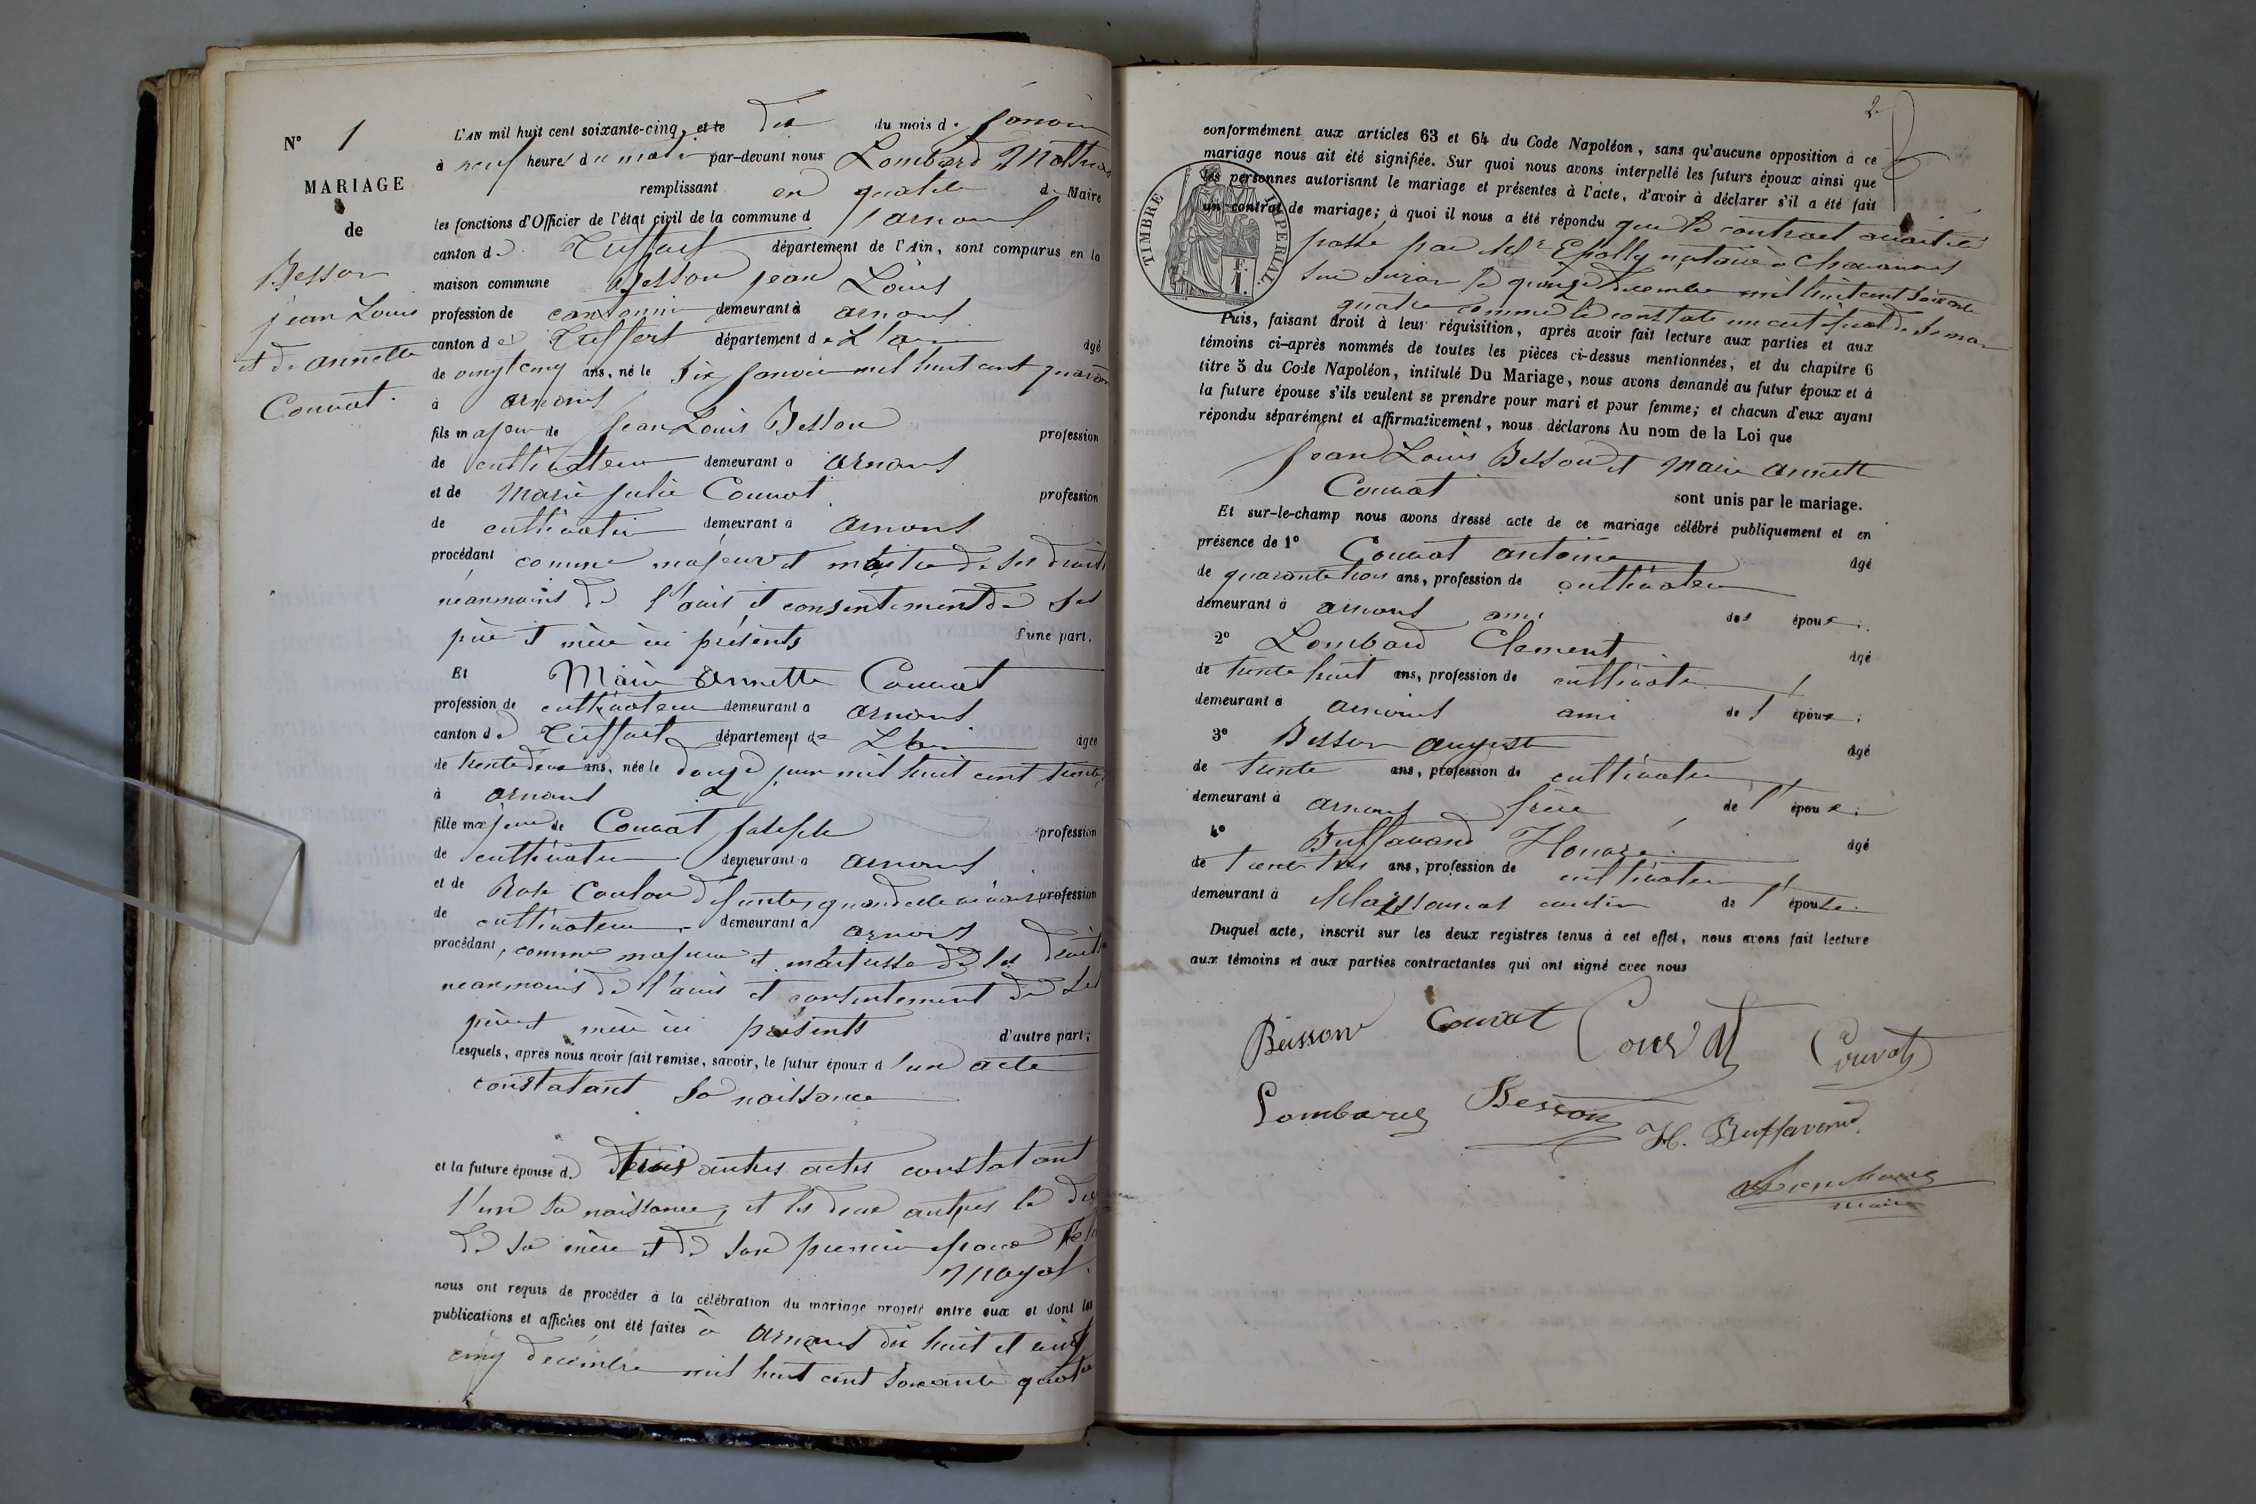 N° 1
MARIAGE
de
Besson
jean Louis
et de annette
Couvat.
L'AN mil huit cent soixante-cinq, et le dix du mois de janvier
à neuf heures du matin par-devant nous Lombard Mathias
remplissant en qualité de Maire
les fonctions d'Officier de l'état civil de la commune d'arnans
canton de Treffort département de l'Ain, sont comparus en la
maison commune Besson jean Louis
profession de cantonnier demeurant à arnans
canton de Treffort département de L'ain âgé
de vingt cinq ans, né le Six janvier mil huit cent quarante
à arnans
fils majeur de jean Louis Besson profession
de cultivateur demeurant à arnans
et de Marie julie Couvat profession
de cultivatrice demeurant à arnans
procédant comme majeur et maitre de ses droits
néanmoins de l'avis et consentement de ses
père et mère ici présents d'une part.
Et Marie Annette Couvat
profession de cultivateur demeurant à arnans
canton de Treffort département de L'ain âgée
de trente deux ans, née le douze juin mil huit cent trente
à arnans
fille majeure de Couvat joseph profession
de cultivateur demeurant à arnans
et de Rose Coulon défunte, quand elle vivait profession
de cultivateur demeurant à arnans
procédant, comme majeure et maitresse de ses droits
néanmoins de l'avis et consentement de ses
père et mère ici présents d'autre part;
Lesquels, après nous avoir fait remise, savoir, le futur époux d'un acte
constatant sa naissance
et la future épouse de trois autres actes constatant
l'un sa naissance, et les deux autres le
de sa mère et de son premier époux
Mayot.
nous ont requis de procéder à la célébration du mariage projeté entre eux et dont les
publications et affiches ont été faites à arnans dix huit et vingt
cinq décembre mil huit cent soixante quatre
2
conformément aux articles 63 et 64 du Code Napoléon, sans qu'aucune opposition à ce
mariage nous ait été signifiée. Sur quoi nous avons interpellé les futurs époux ainsi que
les personnes autorisant le mariage et présentes à l'acte, d'avoir à déclarer s'il a été fait
un contrat de mariage; à quoi il nous a été répondu que le contrat avait été
TIMBRE IMPERIAL.
F.
1.
passé par Me notaire à Chavannes
sur suran le quinze décembre mil huit cent soixante
quatre comme le constate un certificat de
Puis, faisant droit à leur réquisition, après avoir fait lecture aux parties et aux
témoins ci-après nommés de toutes les pièces ci-dessus mentionnées, et du chapitre 6
titre 5 du Code Napoléon, intitulé Du Mariage, nous avons demandé au futur époux et à
la future épouse s'ils veulent se prendre pour mari et pour femme; et chacun d'eux ayant
répondu séparément et affirmativement, nous déclarons Au nom de la Loi que
jean Louis Besson et Marie annette
Couvat sont unis par le mariage.
Et sur-le-champ nous avons dressé acte de ce mariage célébré publiquement et en
présence de 1° Couvat antoine âgé
de quarante trois ans, profession de cultivateur
demeurant à arnans ami des époux.
2° Lombard Clement âgé
de trente huit ans, profession de cultivateur
demeurant à arnans ami de l'époux;
3° Besson auguste âgé
de trente ans, profession de cultivateur
demeurant à arnans frère de l'époux;
4° Buffavand Honoré âgé
de trente trois ans, profession de cultivateur
demeurant à cousin de l'épouse.
Duquel acte, inscrit sur les deux registres tenus à cet effet, nous avons fait lecture
aux témoins et aux parties contractantes qui ont signé avec nous
Besson Couvat Couvat Couvat
Lombard Besson H. Buffavand
Lombard
maire